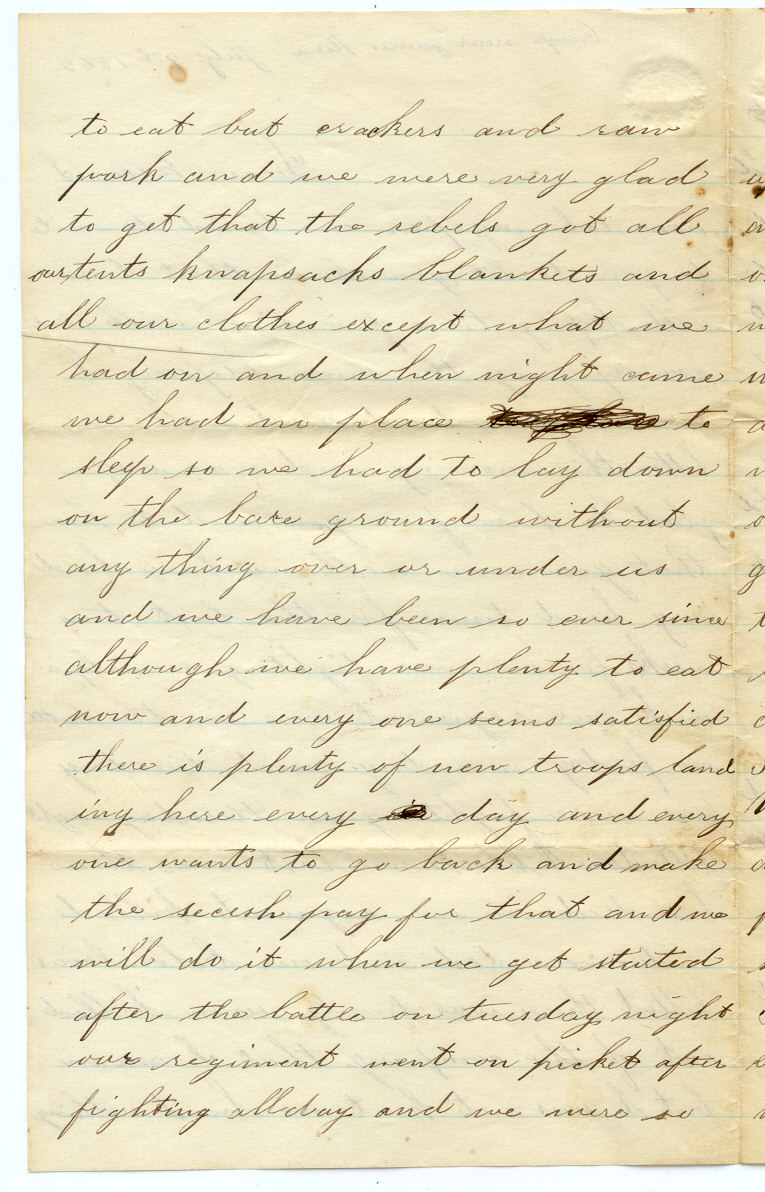 to eat but crackers and raw
pork and we were very glad
to get that the rebels got all
our tents knapsacks blankets and
all our clothes except what we
had on and when night came
we had no place to
sleep so we had to lay down
on the bare ground without
any thing over or under us
and we have been so ever since
although we have plenty to eat
now and every one seems satisfied
there is plenty of new troops land
ing here every day and every
one wants to go back and make
the secesh pay for that and we
will do it when we get started
after the battle on tuesday night
our regiment went on picket after
fighting all day and we were so